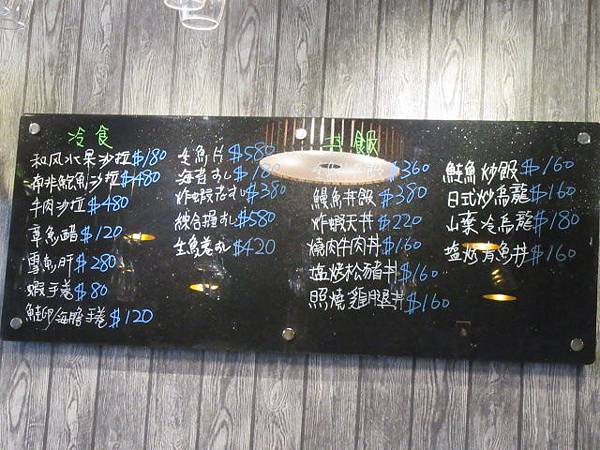 冷食
和风水果沙拉$180
南非鮑魚沙拉$480
牛肉沙拉$480
章魚醋$120
雪魚肝$280
蝦手卷$80
鮭卵/海膽手卷$120
生魚片$580
海苔すし$180
炸蝦花すし$380
綜合握すし$580
生魚卷すし$420
丼飯
$360
鰻魚丼飯$380
炸蝦天丼$220
燒肉牛肉丼$160
塩烤松豬丼$160
照燒雞腿丼$160
鮭魚炒飯$160
日式炒烏龍$160
山藥冷烏龍$180
塩烤青魚丼$160